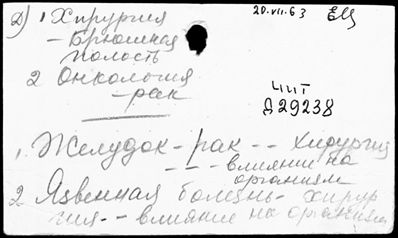 20.VII.63 ЕЦ
Д) 1 Хирургия
- Брюшная
полость
2 Онкология
- рак
ЧИТ
Д29238
1. Желудок - рак -- хирургия
--- влияние на
организм
2. Язвенная болезнь - хирур
гия -- влияние на организм